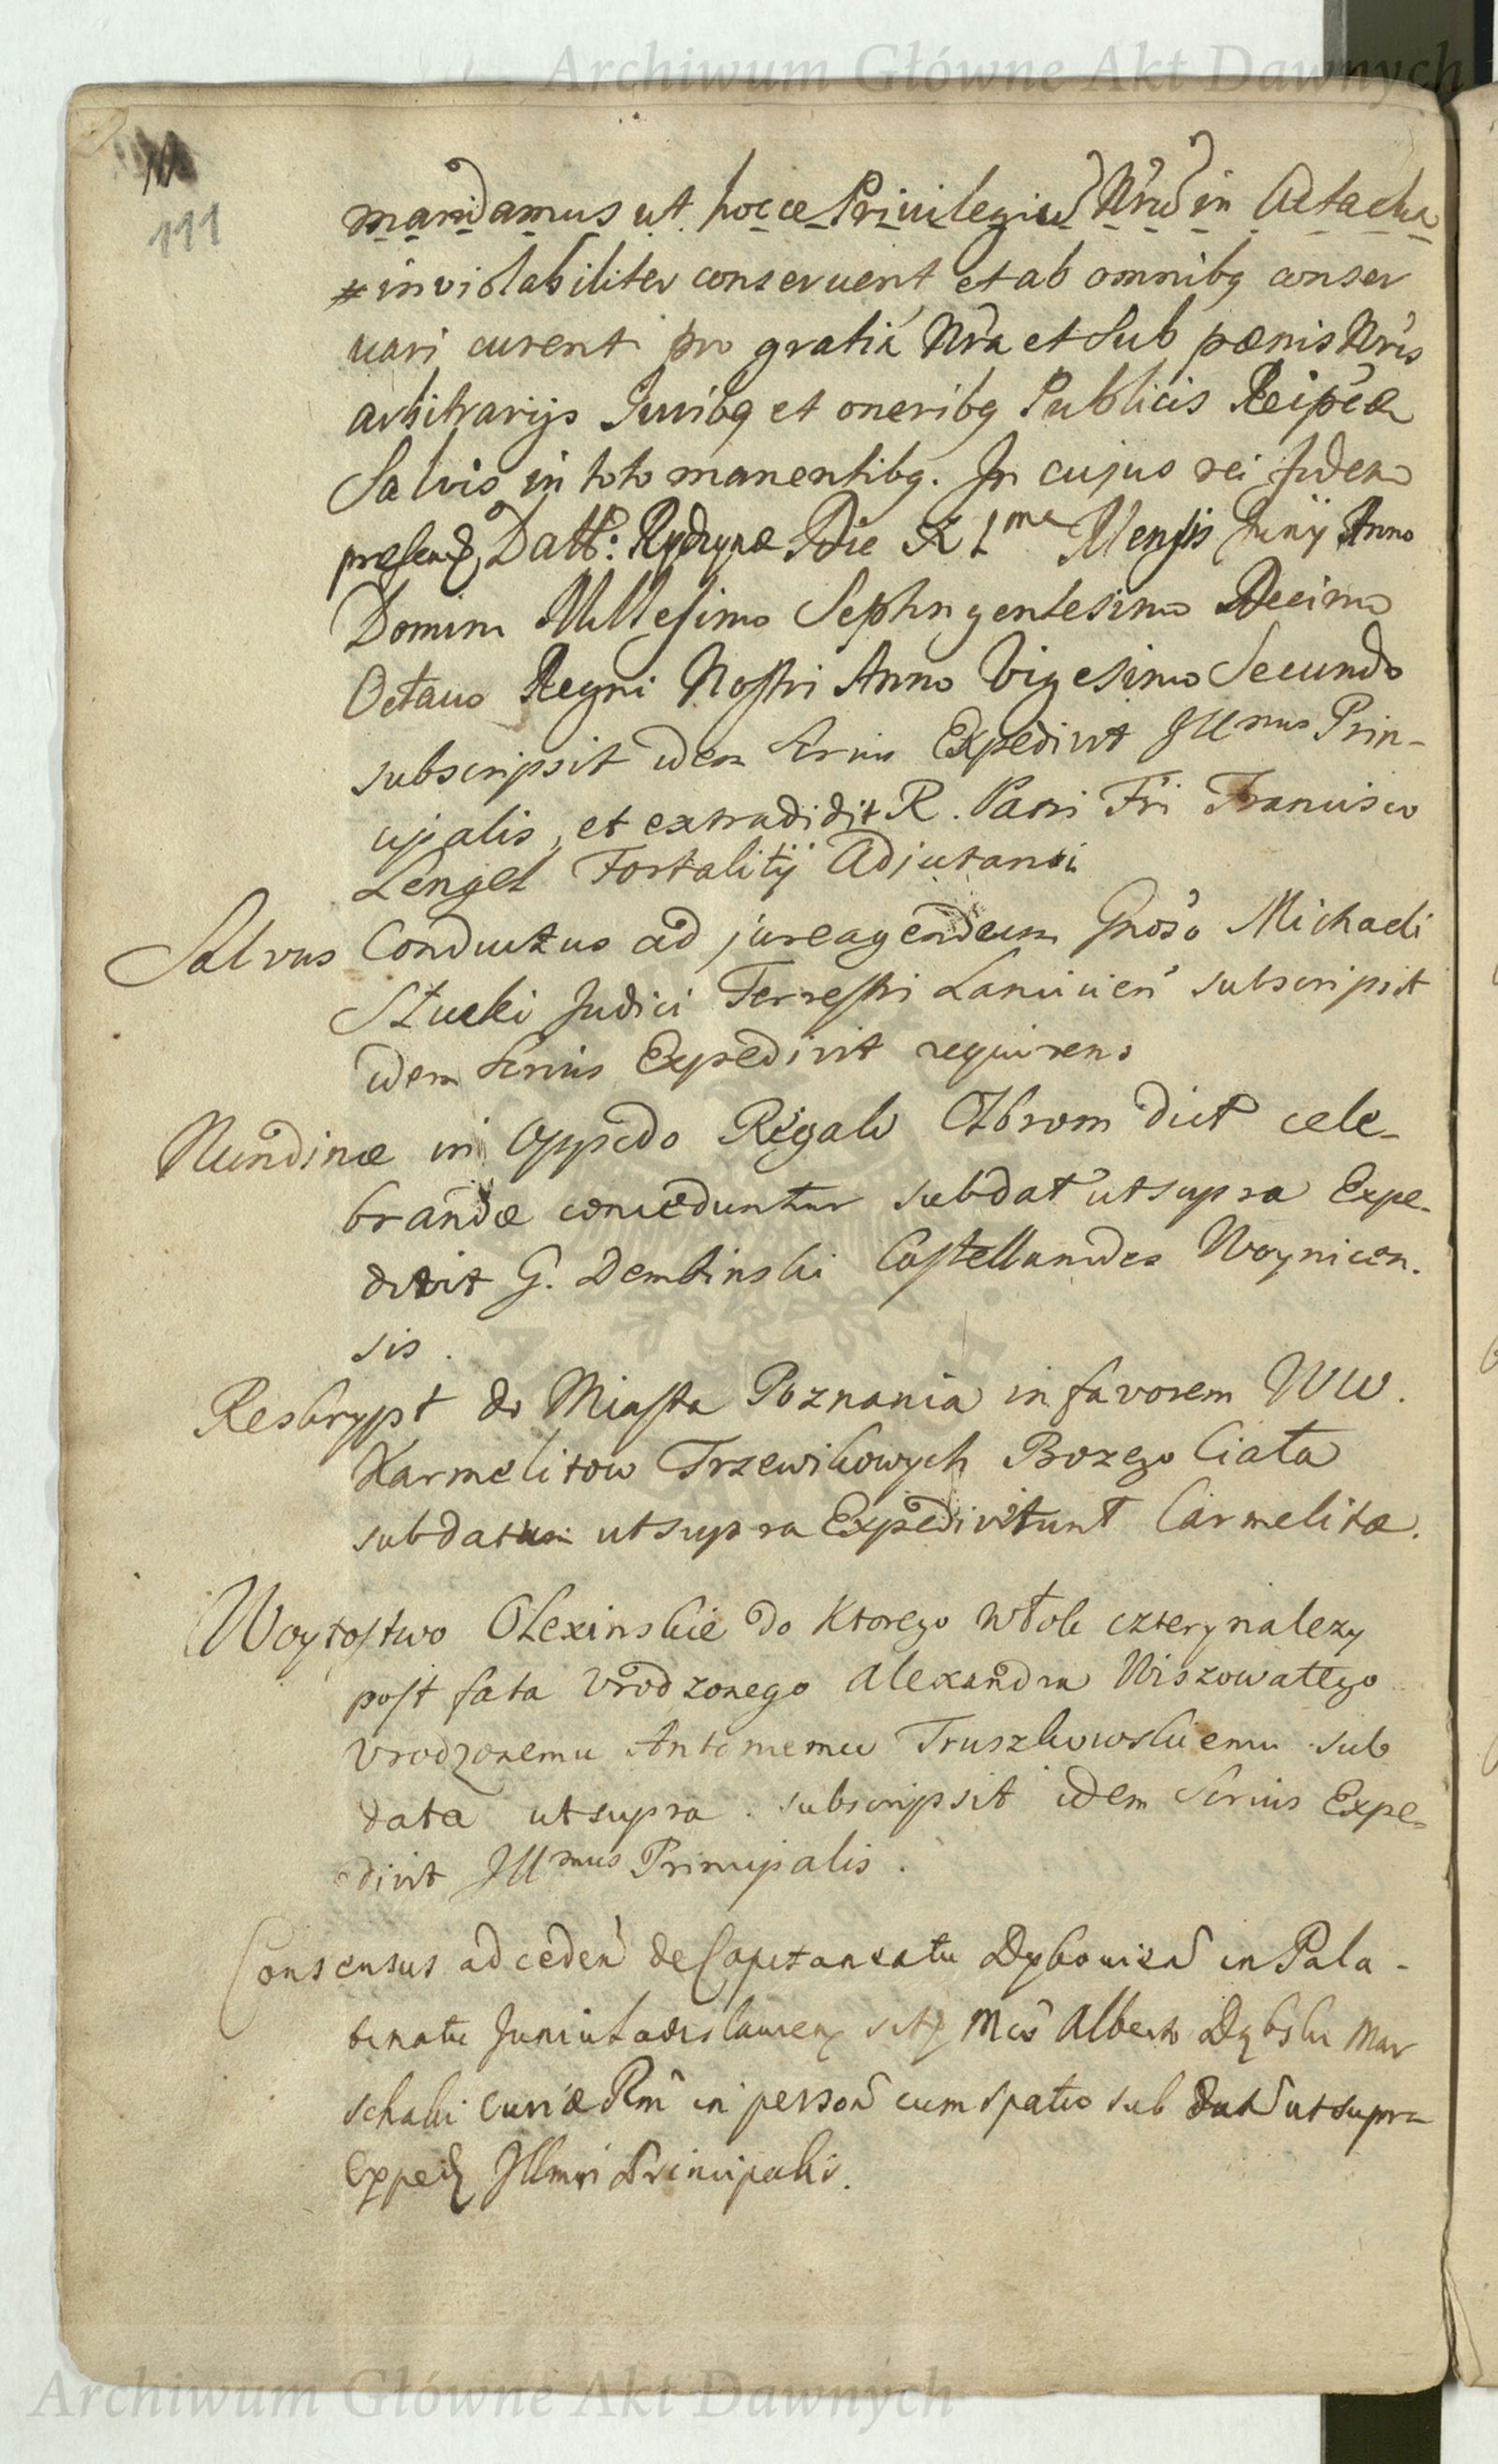 Archiwum Główne Akt Dawnych
111
mandamus ut hocce Privilegiũ Nrũ in
inviolabiliter conservent et ab omnibq conser
vari curent pro gratiá Nrã et sub pœnis Nrĩs
arbitrarijs Juribq et oneribq Publicis Reipcæ
Salvis in toto manentibq. In cujus rei fidem
Datt: Rydzynæ Die Mensis Junij Anno
Domini Millesimo Septingentesimo Decimo
Octavo Regni Nostri Anno Vigesimo Secundo
subscripsit idem Srius Expedivit Illmus Prin-
cipalis, et extradidit R. Patri Fri Francisco
Lengel Fortalitij Adjutanti
Salvus Conductus ad jure agendum Gnoso Michaeli
Stucki Judici Terrestri Lancicien subscripsit
idem Srius Expedivit requirens
Nundinæ in Oppido Regali Ozbrom dict cele-
brandæ conceduntur sub dat utsupra Expe-
divit G. Dembinski Castellanides Woynicen-
sis.
Reskrypt do Miasta Poznania in favorem WW.
Karmelitow Trzewikowych Bozego Ciała
sub datum utsupra Expediverunt Carmelitæ.
Woytostwo Olexinskie do Ktorego włok cztery nalezy
post fata Vrodzonego Alexandra Wiszowatego
Vrodzonemu Antoniemu Truszkowskiemu sub
data utsupra. subscripsit idem Srius Expe-
divit Illmus Principalis.
Consensus ad ceden de Capitaneatu Dybovien in Pala-
tinatu Juniuladislavien Mco Alberto Dąbski Mar
schalki Curiæ Rni in person cum spatio sub dat ut supra
Exped Illmi Principalis.
Archiwum Główne Akt Dawnych